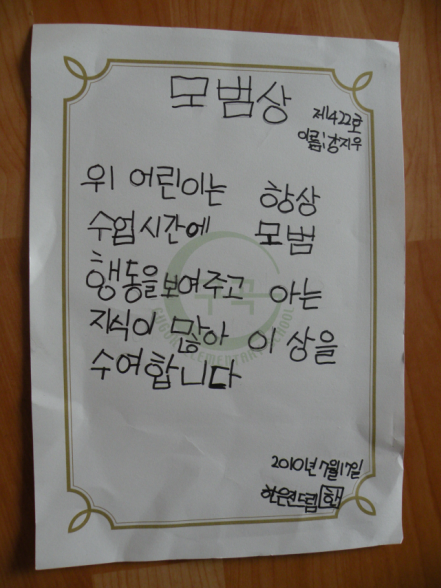 모범상
제422호
이름:강지우
위 어린이는 항상
수업시간에 모범
행동을 보여주고 아는
지식이 많아 이 상을
수여합니다
2010년 7월 17일